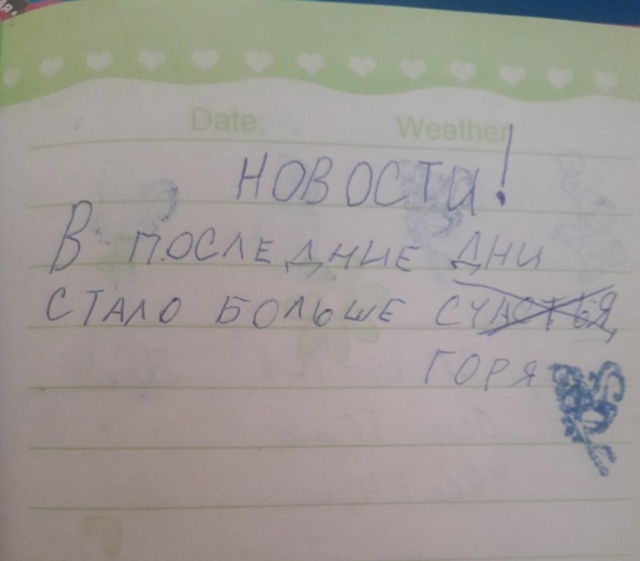 Date: Weather
НОВОСТИ!
В ПОСЛЕДНИЕ ДНИ
СТАЛО БОЛЬШЕ СЧАСТЬЯ
ГОРЯ